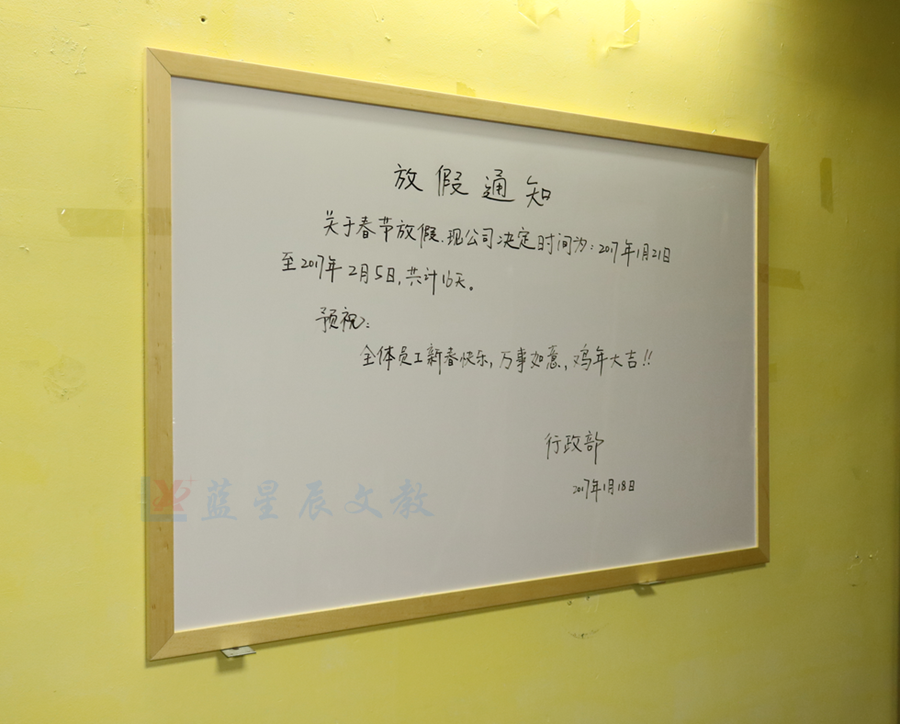 放假通知
关于春节放假，现公司决定时间为：2017年1月21日
至2017年2月5日，共计16天。
预祝：
全体员工新春快乐，万事如意，鸡年大吉！！
行政部
2017年1月18日
蓝星辰文教